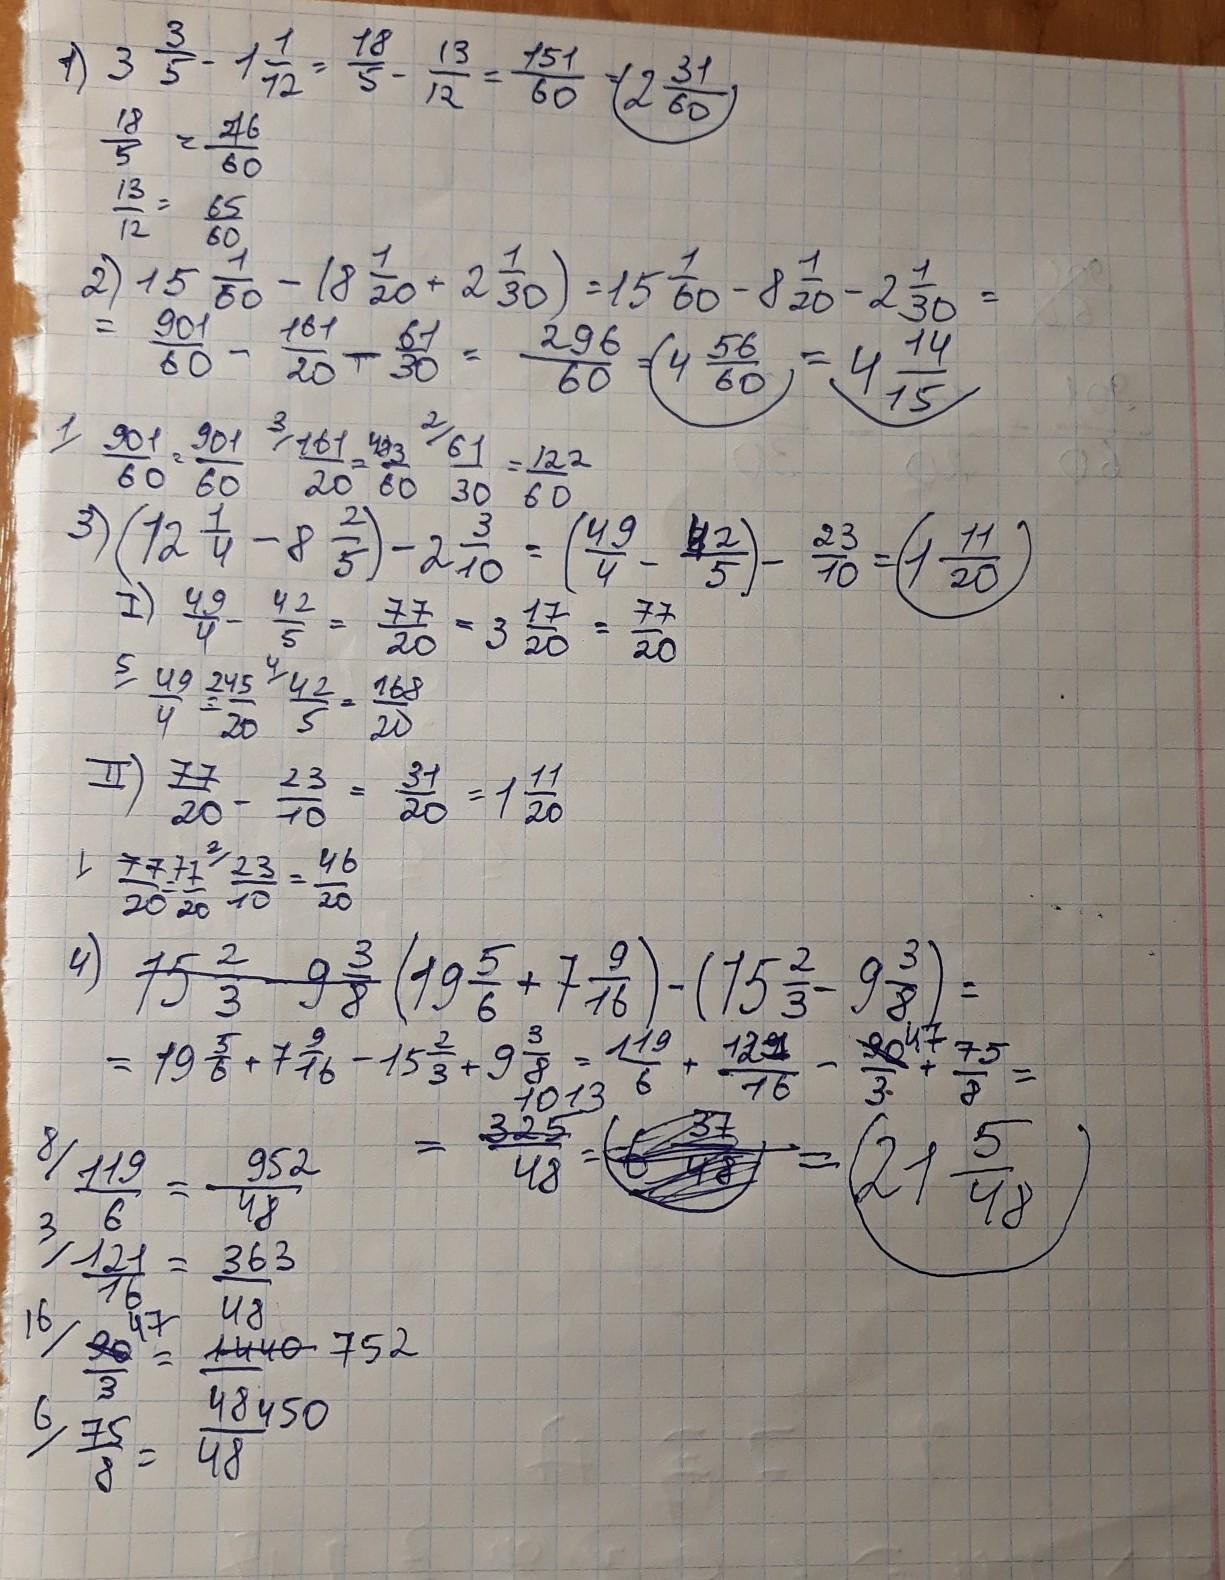 1) 3 3/5 - 1 1/12 = 18/5 - 13/12 = 151/60 = (2 31/60)
18/5 = 216/60
13/12 = 65/60
2) 15 1/60 - (8 1/20 + 2 1/30) = 15 1/60 - 8 1/20 - 2 1/30 =
= 901/60 - 161/20 - 61/30 = 296/60 = (4 56/60) = 4 14/15
1/ 901/60 = 901/60 3/ 161/20 = 483/60 2/ 61/30 = 122/60
3) (12 1/4 - 8 2/5) - 2 3/10 = (49/4 - 42/5) - 23/10 = (1 11/20)
I) 49/4 - 42/5 = 77/20 = 3 17/20 = 77/20
5/ 49/4 = 245/20 4/ 42/5 = 168/20
II) 77/20 - 23/10 = 31/20 = 1 11/20
1 77/20 = 77/20 2/ 23/10 = 46/20
4) 15 2/3 - 9 3/8 (19 5/6 + 7 9/16) - (15 2/3 - 9 3/8) =
= 19 5/6 + 7 9/16 - 15 2/3 + 9 3/8 = 119/6 + 121/16 - 47/3 + 75/8 =
= 1013/48 = 6 37/48 = (21 5/48)
8/ 119/6 = 952/48
3/ 121/16 = 363/48
16/ 90 47/3 = 1440 752/48
6/ 75/8 = 450/48